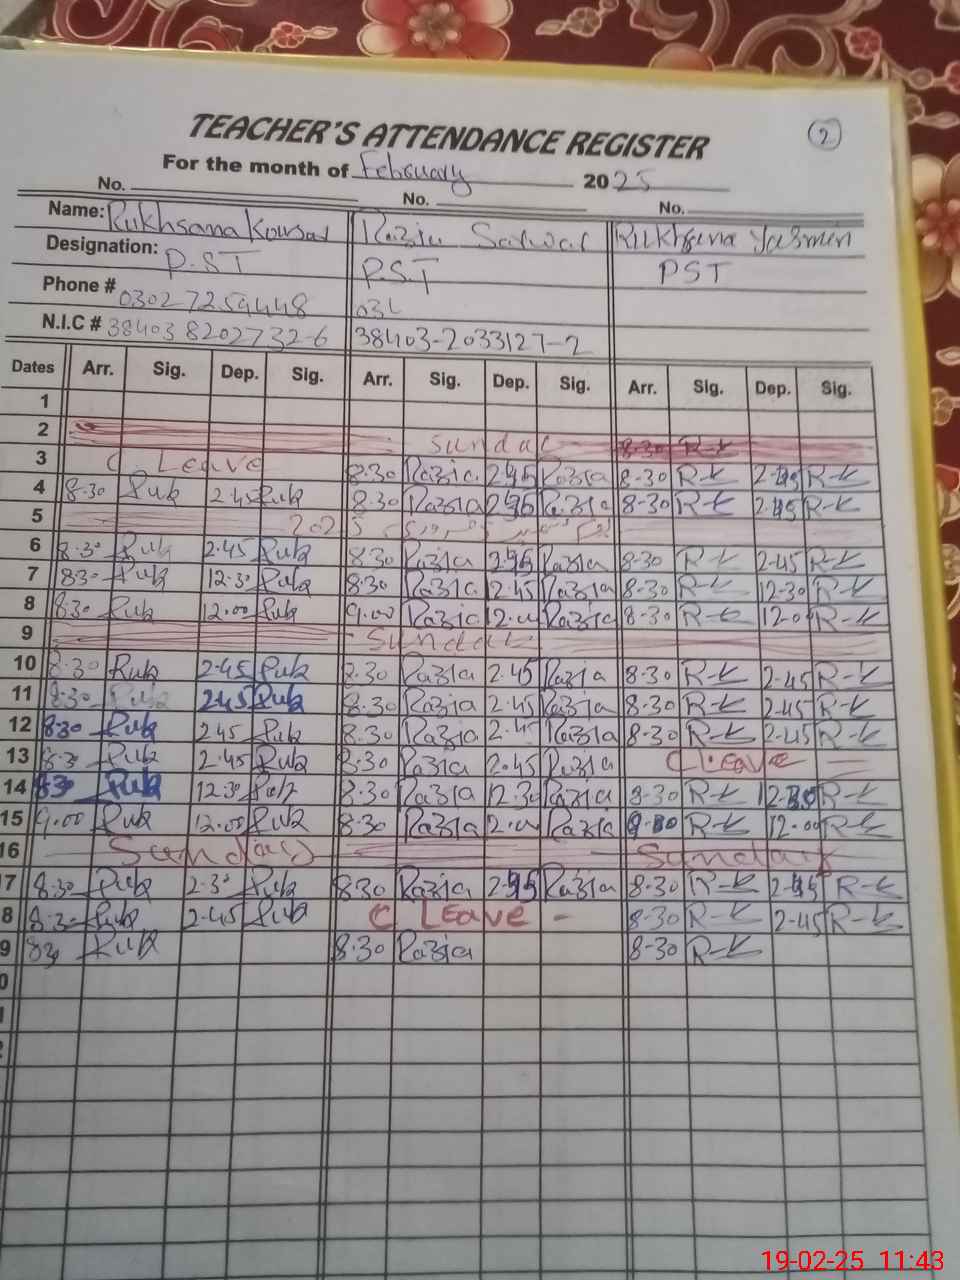 TEACHER'S ATTENDANCE REGISTER 2
For the month of February 2025
No. No. No.
Name: Rukhsana Kousar Razia Sarwar Rukhsana Yasmin
Designation: P.ST P.S.T PST
Phone # 03027259448 03
N.I.C # 38403 8202732-6 38403-2033127-2
Dates Arr. Sig. Dep. Sig. Arr. Sig. Dep. Sig. Arr. Sig. Dep. Sig.
1
2 Sunday 8-30 R-K
3 C Leave 8.30 Razia 2.45 Razia 8-30 R-K 2-45 R-K
4 8-30 Ruk 2.45 Ruk 8.30 Razia 2.45 Razia 8-30 R-K 2.45 R-K
5 2025
6 8.30 Ruk 2.45 Ruk 8.30 Razia 2.45 Razia 8-30 R-K 2-45 R-K
7 830 Ruk 12.30 Ruk 8.30 Razia 2.45 Razia 8-30 R-K 12-30 R-K
8 8.30 Ruk 12.00 Ruk 9.00 Razia 12.00 Razia 8-30 R-K 12-0 R-K
9 Sunday
10 8.30 Ruk 2.45 Ruk 8.30 Razia 2.45 Razia 8-30 R-K 2-45 R-K
11 8.30 Ruk 2.45 Ruk 8.30 Razia 2.45 Razia 8-30 R-K 2.45 R-K
12 8.30 Ruk 2.45 Ruk 8.30 Razia 2.45 Razia 8-30 R-K 2-45 R-K
13 8.30 Ruk 2.45 Ruk 8.30 Razia 2.45 Razia C Leave
14 8.30 Ruk 12.30 Ruk 8.30 Razia 12.30 Razia 8-30 R-K 12-30 R-K
15 9.00 Ruk 12.00 Ruk 8.30 Razia 2.00 Razia R-K 12.00 R-K
16 Sunday Sunday
7 8.30 Ruk 2.30 Ruk 8.30 Razia 2.45 Razia 8-30 R-K 2-45 R-K
8 8.30 Ruk 2.45 Ruk C Leave - 8-30 R-K 2-45 R-K
9 830 Ruk 8.30 Razia 8-30 R-K
0
1
2
19-02-25 11:43